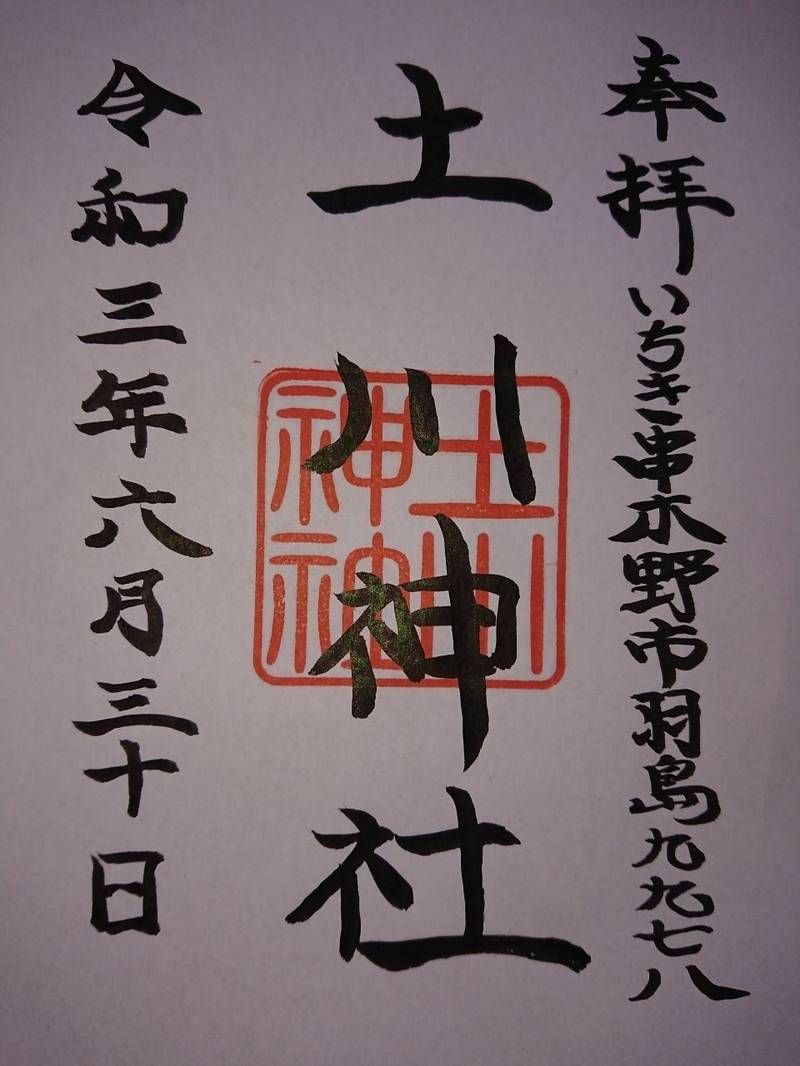 奉拝 いちき串木野市羽島九九七八
土川神社
土川
神社
令和三年六月三十日